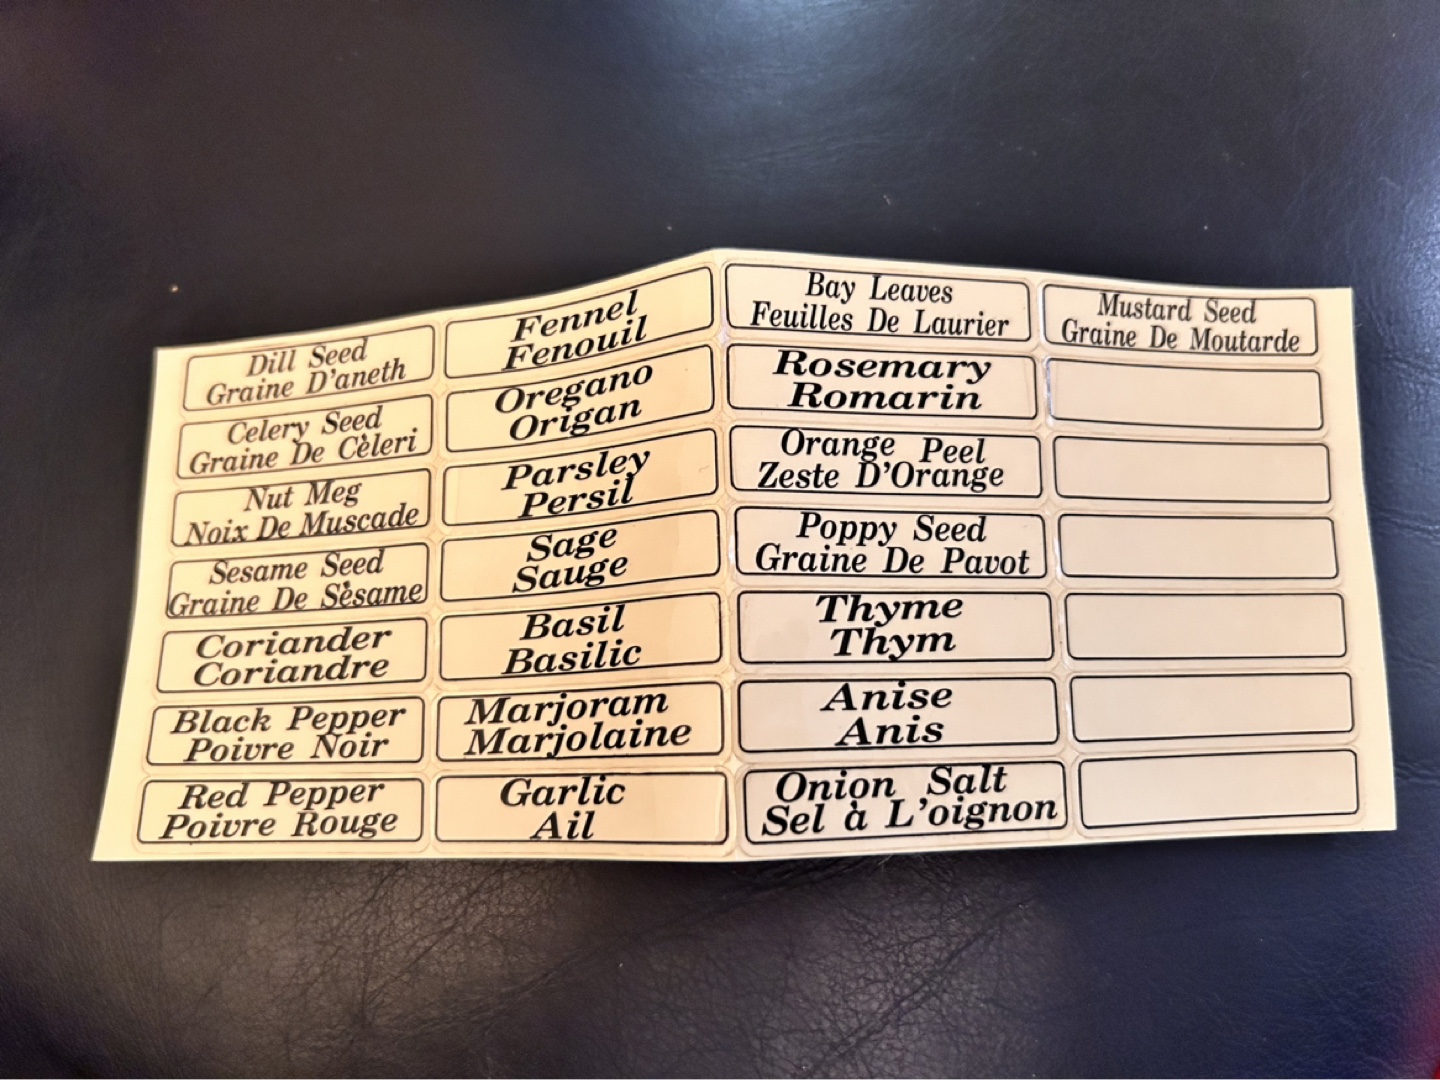 Dill Seed
Graine D'aneth
Celery Seed
Graine De Cèleri
Nut Meg
Noix De Muscade
Sesame Seed
Graine De Sèsame
Coriander
Coriandre
Black Pepper
Poivre Noir
Red Pepper
Poivre Rouge
Fennel
Fenouil
Oregano
Origan
Parsley
Persil
Sage
Sauge
Basil
Basilic
Marjoram
Marjolaine
Garlic
Ail
Bay Leaves
Feuilles De Laurier
Rosemary
Romarin
Orange Peel
Zeste D'Orange
Poppy Seed
Graine De Pavot
Thyme
Thym
Anise
Anis
Onion Salt
Sel à L'oignon
Mustard Seed
Graine De Moutarde